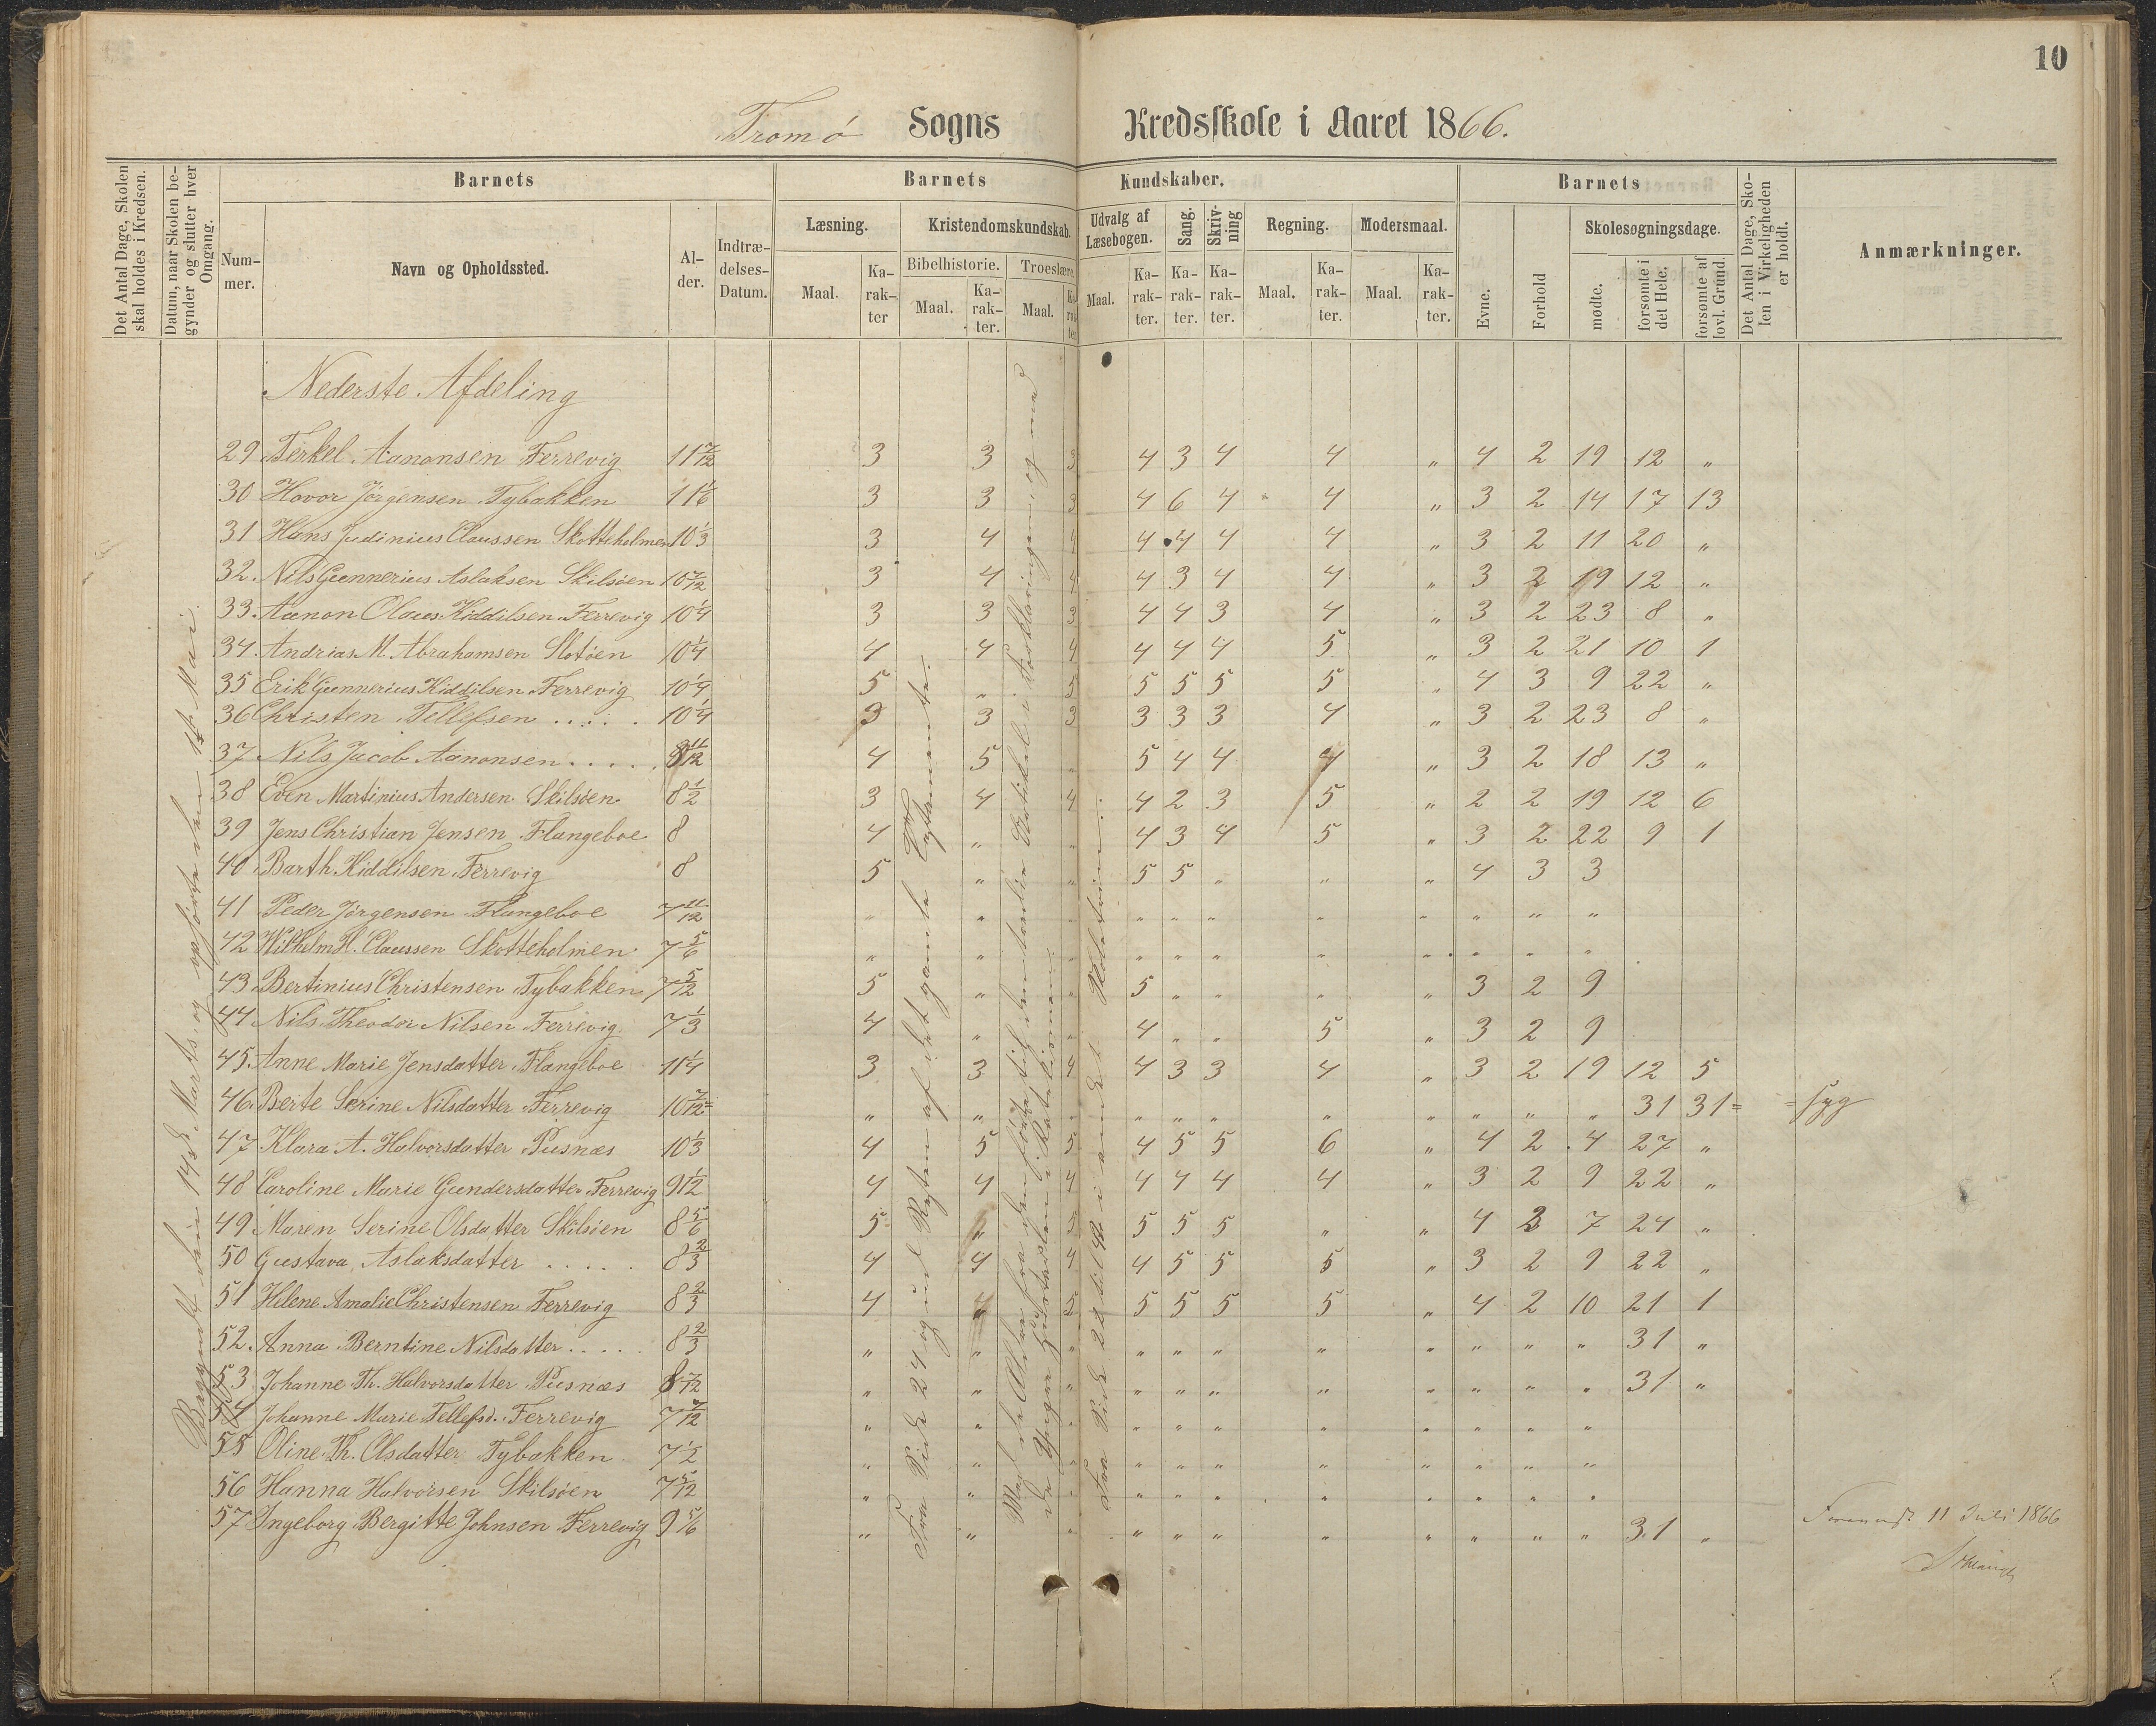 10
Tromø Sogns Kredsskole i Aaret 1866.
Det Antal Dage, Skolen skal holdes i Kredsen.
Datum, naar Skolen begynder og slutter hver Omgang.
Barnets
Nummer.
Navn og Opholdssted.
Alder.
Indtrædelses-Datum.
Barnets Kundskaber.
Læsning.
Maal.
Karakter
Kristendomskundskab.
Bibelhistorie.
Maal.
Karakter.
Troeslære.
Maal.
Karakter
Udvalg af Læsebogen.
Maal.
Karakter.
Sang.
Karakter.
Skrivning
Karakter.
Regning.
Maal.
Karakter.
Modersmaal.
Maal.
Karakter.
Barnets
Evne.
Forhold
Skolesøgningsdage.
mødte.
forsømte i det Hele.
forsømte af lovl. Grund.
Det Antal Dage, Skolen i Virkeligheden er holdt.
Anmærkninger.
Nederste Afdeling
29 Terkel Aanonsen Ferrevig 11 7/12 3 3 3 4 3 4 4 " 4 2 19 12 "
30 Hovor Jørgensen Tybakken 11 1/6 3 3 3 4 6 4 4 " 3 2 14 17 13
31 Hans Judinius Claussen Skotteholmen 10 1/3 3 4 4 4 4 4 4 " 3 2 11 20 "
32. Nils Gunnerius Aslaksen Skilsøen 10 7/12 3 4 4 4 3 4 4 " 3 2 19 12 "
33. Aanon Olaus Kiddilsen Ferrevig 10 1/4 3 3 3 4 4 3 4 " 3 2 23 8 "
34. Andrias M. Abrahamsen Slotøen 10 1/4 4 4 4 4 4 4 5 " 3 2 21 10 1
35 Erik Gunnerius Kiddilsen Ferrevig 10 1/4 5 " 5 5 5 5 5 " 4 3 9 22 "
36 Christen Tellefsen . . . . . 10 1/4 3 3 3 3 3 3 4 " 3 2 23 8 "
37 Nils Jacob Aanonsen . . . . . 8 11/12 4 5 " 5 4 4 4 " 3 2 18 13 "
38 Even Martinius Andersen Skilsøen 8 1/2 3 4 4 4 2 3 5 " 2 2 19 12 6
39 Jens Christian Jensen Flangeboe 8 4 " " 4 3 4 5 " 3 2 22 9 1
40 Barth. Kiddilsen Ferrevig 8 5 " " 5 5 " " " 4 3 3
41 Peder Jørgensen Flangeboe 7 11/12 " " " " " " " " " " "
42 Wilhelm H. Claussen Skotteholmen 7 5/6 " " " " " " " " " " "
43. Bertinius Christensen Tybakken 7 5/12 5 " " 5 " " " " 3 2 9
44 Nils Theodor Nilsen Ferrevig 7 1/3 4 " " 4 " " 5 " 3 2 9
45. Anne Marie Jensdatter Flangeboe 11 1/4 3 3 4 4 3 3 4 " 3 2 19 12 5
46. Berte Serine Nilsdatter Ferrevig 10 7/12 " " " " " " " " " " " 31 31 = = syg
47 Klara A. Halvorsdatter Pusnæs 10 1/3 4 5 5 4 5 5 6 " 4 2 4 27 "
48 Caroline Marie Gundersdatter Ferrevig 9 1/2 4 4 4 4 4 4 4 " 3 2 9 22 "
49 Maren Serine Olsdatter Skilsøen 8 5/6 5 " 5 5 5 5 " " 4 3 7 24 "
50 Gustava Aslaksdatter . . . . . 8 2/3 4 4 4 4 5 5 5 " 3 2 9 22 "
51 Helene Amalie Christensen Ferrevig 8 2/3 4 " 5 5 5 5 5 " 4 2 10 21 1
52. Anna Berntine Nilsdatter . . . . . 8 2/3 " " " " " " " " " " " 31 "
53 Johanne Th. Halvorsdatter Pusnæs 8 7/12 " " " " " " " " " " " 31 "
54 Johanne Marie Tellefsd. Ferrevig 7 7/12 " " " " " " " " " " "
55 Oline Th. Olsdatter Tybakken 7 1/2 " " " " " " " " " " "
56 Hanna Halvorsen Skilsøen 7 5/12 " " " " " " " " " " "
57 Ingeborg Bergitte Johnsen Ferrevig 9 5/6 " " " " " " " " " " " 31 "
11 Juli 1866
Begyndt den 14de Marts og ophørte den Mai
Fra Side 24 og ud Resten af det gamle Testamente.
Fra Side 22 til i andet Skoletrin.